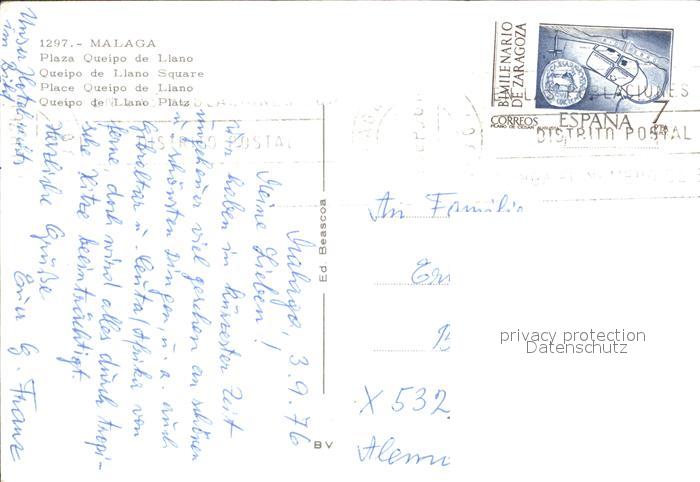 1297.- MALAGA
Plaza Queipo de Llano
Queipo de Llano Square
Place Queipo de Llano
Queipo de Llano Platz
Unser Hotel
im Bild
Malaga, 3.9.76
Meine Lieben!
Wir haben in kürzester Zeit
ungeheuer viel gesehen an schönen
u. schönsten Dingen, u. a. auch
Gibraltar u. Ceuta/Afrika von
ferne, doch wird alles durch tropi-
sche Hitze beeinträchtigt.
Herzliche Grüße
Euer G. Franz
Ed. Beascoa
BV
BIMILENARIO
DE ZARAGOZA
CORREOS
ESPAÑA
7
PTA
POBLACIONES
DISTRITO POSTAL
An Familie
X 532
privacy protection
Datenschutz